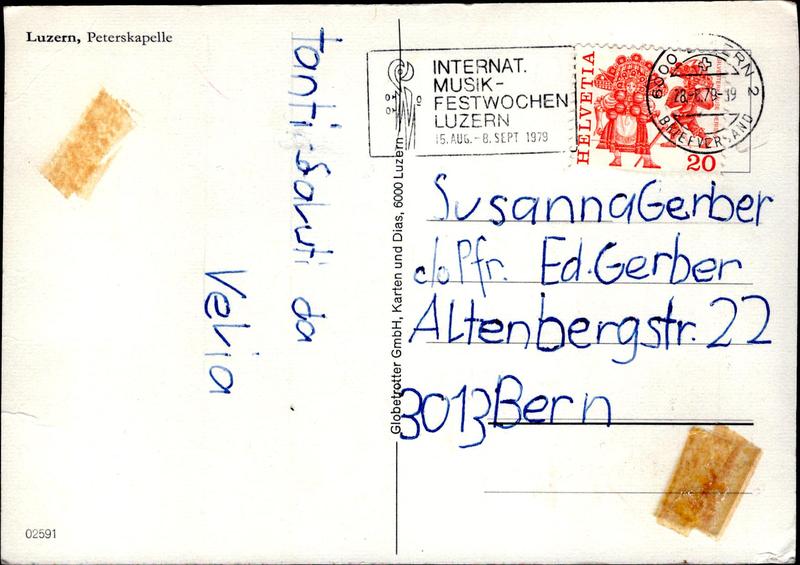 Luzern, Peterskapelle
Tanti-Saluti da
Velia
Globetrotter GmbH, Karten und Dias, 6000 Luzern
INTERNAT.
MUSIK-
FESTWOCHEN
LUZERN
15. AUG. - 8. SEPT 1979
HELVETIA
20
6000 LUZERN 2
79-19
BRIEFVERSAND
Susanna Gerber
c/o Pfr. Ed. Gerber
Altenbergstr. 22
3013 Bern
02591